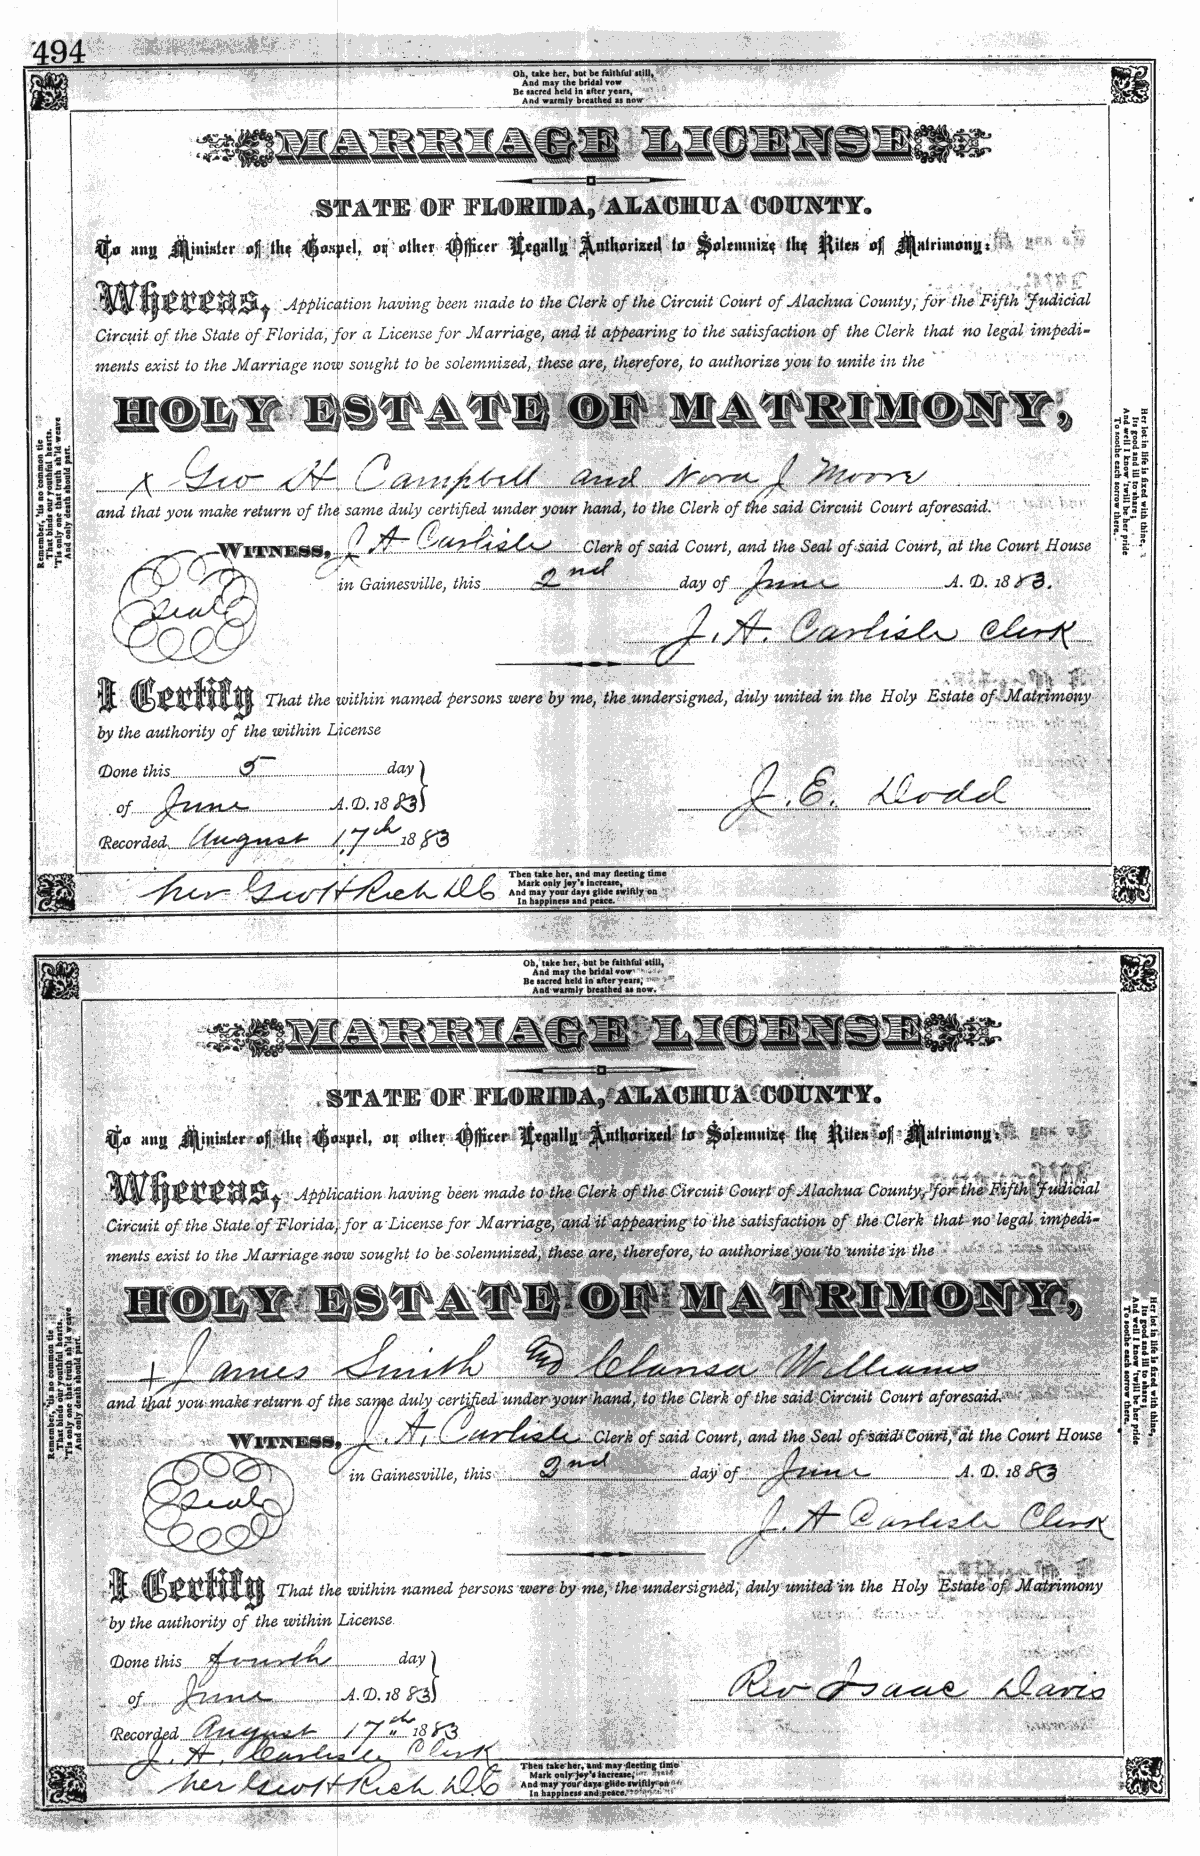 494
Oh, take her, but be faithful still,
And may the bridal vow
Be sacred held in after years,
And warmly breathed as now
MARRIAGE LICENSE
STATE OF FLORIDA, ALACHUA COUNTY.
To any Minister of the Gospel, or other Officer Legally Authorized to Solemnize the Rites of Matrimony:
Whereas, Application having been made to the Clerk of the Circuit Court of Alachua County, for the Fifth Judicial
Circuit of the State of Florida, for a License for Marriage, and it appearing to the satisfaction of the Clerk that no legal impedi-
ments exist to the Marriage now sought to be solemnized, these are, therefore, to authorize you to unite in the
HOLY ESTATE OF MATRIMONY,
x Geo H Campbell and Nora J Moore
and that you make return of the same duly certified under your hand, to the Clerk of the said Circuit Court aforesaid.
WITNESS, J A Carlisle Clerk of said Court, and the Seal of said Court, at the Court House
seal
in Gainesville, this 2nd day of June A. D. 1883.
J. A. Carlisle Clerk
I Certify That the within named persons were by me, the undersigned, duly united in the Holy Estate of Matrimony
by the authority of the within License
Done this 5 day
of June A. D. 1883
J. E. Dodd
Recorded August 17th 1883
Per Geo H Rich D C
Then take her, and may fleeting time
Mark only joy's increase,
And may your days glide swiftly on
In happiness and peace.
Remember, 'tis no common tie
That binds our youthful hearts,
'Tis only one that truth sh'ld weave
And only death should part.
Her lot in life is fixed with thine,
Its good and ill to share;
And well I know 'twill be her pride
To soothe each sorrow there.
Oh, take her, but be faithful still,
And may the bridal vow
Be sacred held in after years,
And warmly breathed as now.
MARRIAGE LICENSE
STATE OF FLORIDA, ALACHUA COUNTY.
To any Minister of the Gospel, or other Officer Legally Authorized to Solemnize the Rites of Matrimony:
Whereas, Application having been made to the Clerk of the Circuit Court of Alachua County, for the Fifth Judicial
Circuit of the State of Florida, for a License for Marriage, and it appearing to the satisfaction of the Clerk that no legal impedi-
ments exist to the Marriage now sought to be solemnized, these are, therefore, to authorize you to unite in the
HOLY ESTATE OF MATRIMONY,
+ James Smith and Clansa Williams
and that you make return of the same duly certified under your hand, to the Clerk of the said Circuit Court aforesaid.
WITNESS, J. A. Carlisle Clerk of said Court, and the Seal of said Court, at the Court House
seal
in Gainesville, this 2nd day of June A. D. 1883
J. A Carlisle Clerk
I Certify That the within named persons were by me, the undersigned, duly united in the Holy Estate of Matrimony
by the authority of the within License
Done this fourth day
of June A. D. 1883
Rev Isaac Davis
Recorded August 17th 1883
J. A. Carlisle Clerk
Per Geo H Rich D.C
Then take her, and may fleeting time
Mark only joy's increase,
And may your days glide swiftly on
In happiness and peace.
Remember, 'tis no common tie
That binds our youthful hearts,
'Tis only one that truth sh'ld weave
And only death should part.
Her lot in life is fixed with thine,
Its good and ill to share;
And well I know 'twill be her pride
To soothe each sorrow there.